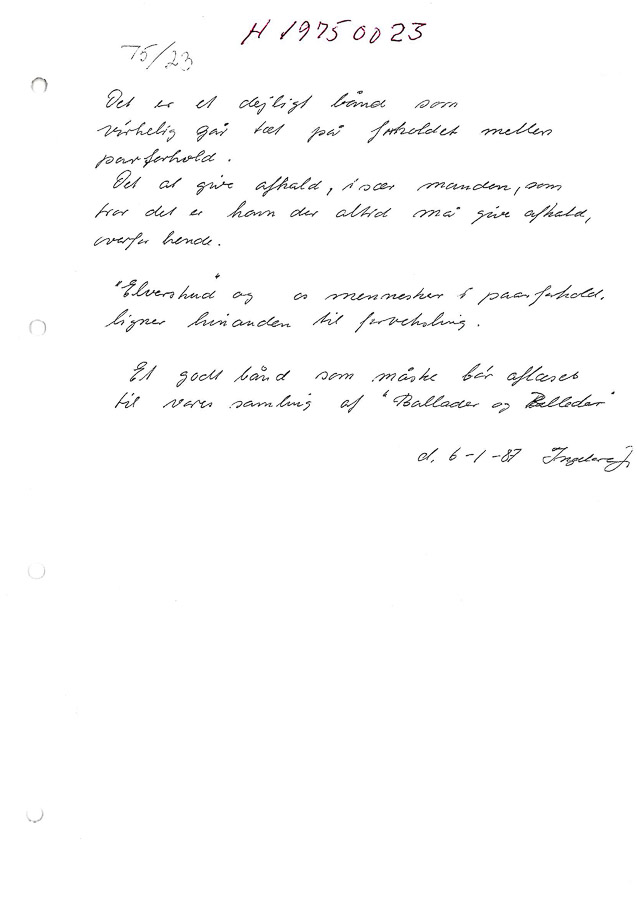 H 1975 00 23
75/23
Det er et dejligt bånd som
virkelig går tæt på forholdet mellem
parforhold.
Det at give afkald, især manden, som
tror det er ham der altid må give afkald,
overfor hende.
"Elverskud" og os mennesker i paarforhold.
ligner hinanden til forveksling.
Et godt bånd som måske bør aflæses
til vores samling af "Ballader og Balleder"
d. 6-1-87